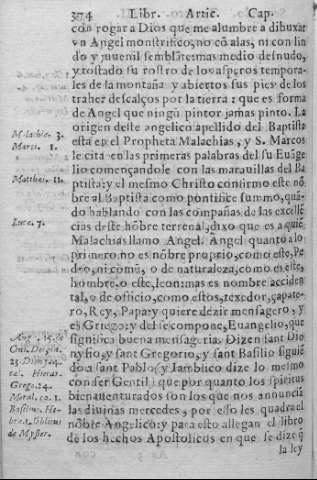 304 Libr. Artic. Cap.
con rogar a Dios que me alumbre a dibuxar
vn Angel monstrifico, no cõ alas, ni con lin
do y juvenil semblãte: mas medio desnudo,
y tostado su rostro de los asperos tempora-
les de la montaña y abiertos sus pies de los
traher descalços por la tierra: que es forma
de Angel que ningũ pintor jamas pinto. La
origen deste angelico apellido del Baptista
esta en el Propheta Malachias, y S. Marcos
le cita en las primeras palabras del su Euãge
lio començandole con las marauillas del Ba
ptista: y el mesmo Christo confirmo este nõ
bre al Baptista como pontifice summo, quã-
do hablando con las compañas de las excellẽ
cias deste hõbre terrenal, dixo que es aquiẽ
Malachias llamo Angel. Angel quanto alo
primero no es nõbre proprio, como este, Pe-
dro, ni comũ, o de naturaleza, como es este,
hombre, o este, leon: mas es nombre acciden
tal, o de officio, como estos, texedor, çapate-
ro, Rey, Papa: y quiere dezir mensagero, y
es Griego: y del se compone, Euangelio, que
significa buena mensageria. Dizen sant Dio
nysio, y sant Gregorio, y sant Basilio siguiẽ
do a sant Pablo, y Iamblico dize lo mesmo
con ser Gentil; que por quanto los spiritus
bienauenturados son los que nos annuncia
las diuinas mercedes, por esso les quadra el
nõbre Angelico: y para esto allegan el libro
de los hechos Apostolicos en que se dize q̃
la ley
Malachie. 3.
Marci. 1.
Matthæi. 11.
Lucæ. 7.
Ciuit. Dei
cæl. Hierar.
Greg. 34.
Moral. ca. 1.
Basilius. He-
de Myster.